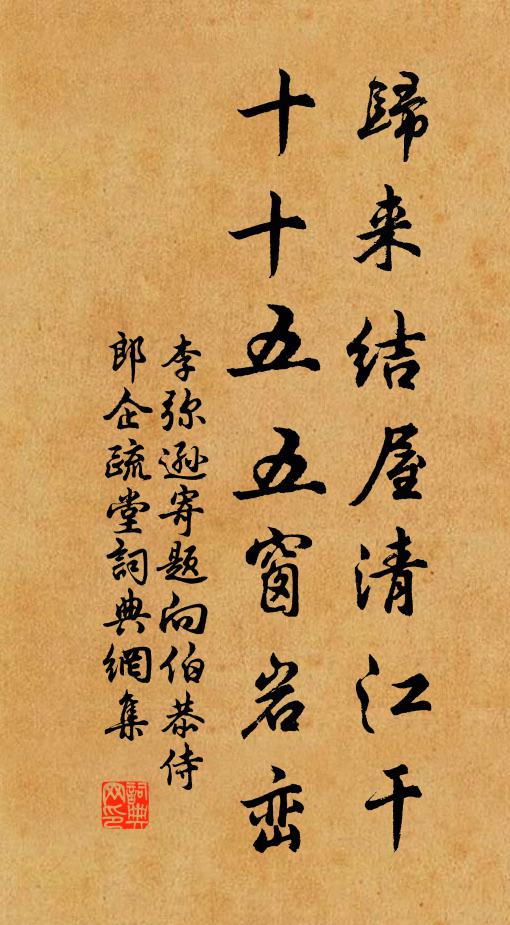 歸来结屋清江干
十十五五窗岩峦
李弥遜寄题向伯恭侍
郎企疏堂詞典網集
詞典网印